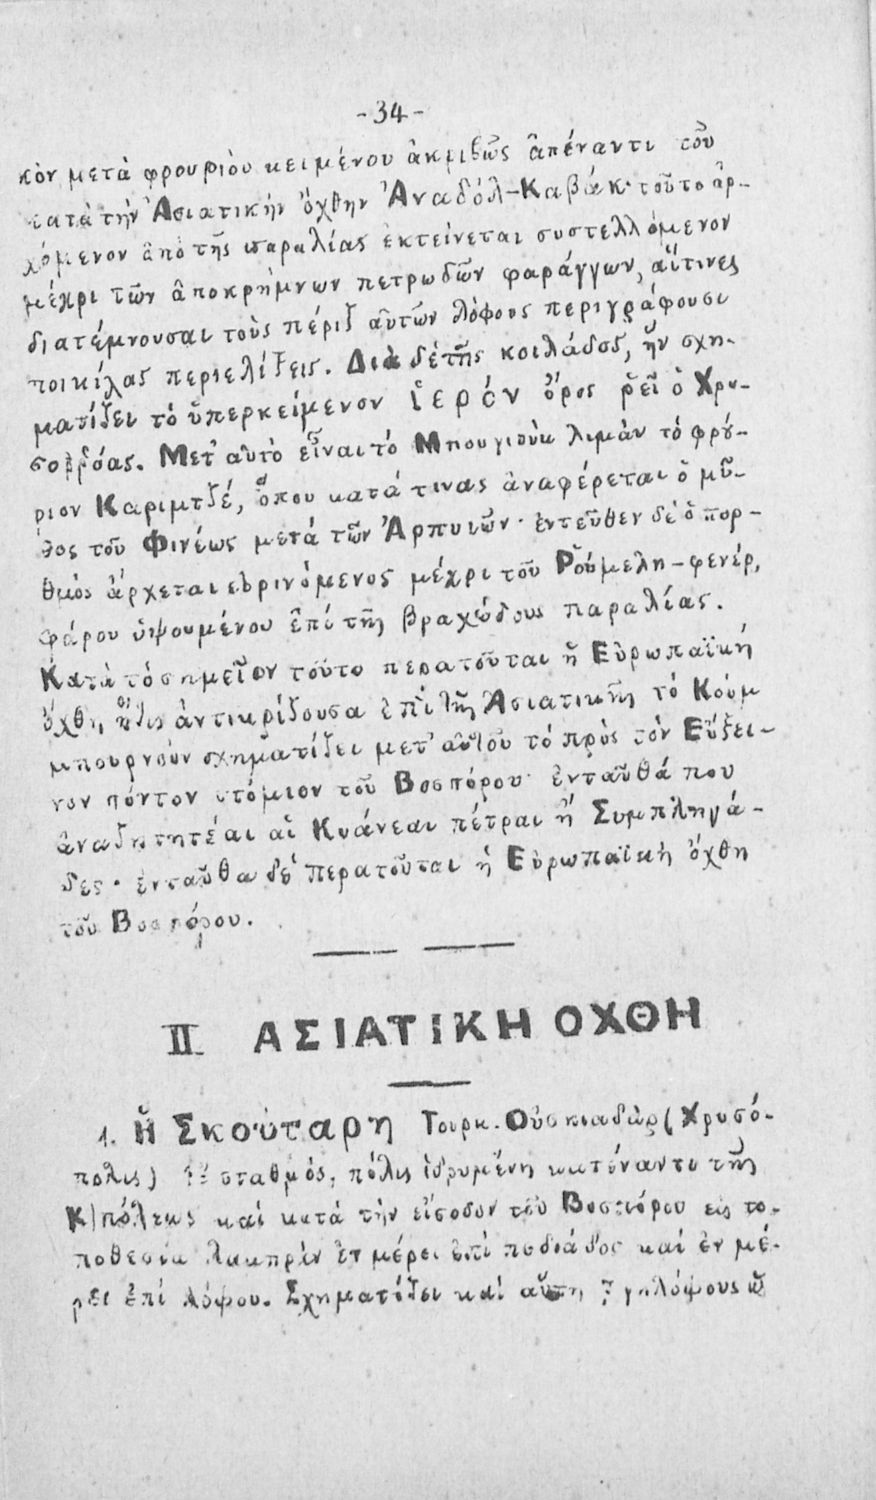 -34-
κὸν μετὰ φρουρίου κειμένου ἀκριβῶς ἀπέναντι τοῦ
κατὰ τὴν Ἀσιατικὴν ὄχθην Ἀναδόλ-Καβάκ· τοῦτο ἀρ-
χόμενον ἀπὸ τῆς παραλίας ἐκτείνεται συστελλόμενον
μέχρι τῶν ἀποκρήμνων πετρωδῶν φαράγγων, αἵτινες
διατέμνουσαι τοὺς πέριξ αὐτῶν λόφους περιγράφουσι
ποικίλας περιελίξεις. Διὰ δὲ τῆς κοιλάδος, ἣν σχη-
ματίζει τὸ ὑπερκείμενον ἱερόν ὄρος ῥεῖ ὁ Χρυ-
σοῤῥόας. Μετ' αὐτὸ εἶναι τὸ Μπουγιοὺκ λιμὰν τὸ φρού-
ριον Καριμτζέ, ὅπου κατά τινας ἀναφέρεται ὁ μῦ-
θος τοῦ Φινέως μετά τῶν Ἀρπυιῶν· ἐντεῦθεν δὲ ὁ πορ-
θμὸς ἄρχεται εὐρινόμενος μέχρι τοῦ Ῥούμελη-φενέρ,
φάρου ὑψουμένου ἐπί τῆς βραχώδους παραλίας.
Κατὰ τὸ σημεῖον τοῦτο περατοῦται ἡ Εὐρωπαϊκή
ὄχθη, ἥτις ἀντικρίζουσα ἐπὶ τῆς Ἀσιατικῆς τό Κούμ
μπουρνοὺν σχηματίζει μετ' αὐτοῦ τὸ πρὸς τὸν Εὔξει-
νον πόντον στόμιον τοῦ Βοσπόρου· ἐνταῦθά που
ἀναζητητέαι αἱ Κυάνεαι πέτραι ἢ Συμπληγά-
δες· ἐνταῦθα δὲ περατοῦται ἡ Εὐρωπαϊκὴ ὄχθη
τοῦ Βοσπόρου.
II ΑΣΙΑΤΙΚΗ ΟΧΘΗ
1. Ἡ Σκούταρη Τουρκ. Οὐσκιαδάρ (Χρυσό-
πολις) σταθμός, πόλις ἱδρυμένη κατέναντι τῆς
Κ)πόλεως καί κατά τὴν εἴσοδον τοῦ Βοσπόρου εἰς το-
ποθεσίαν λαμπράν ἐν μέρει ἐπί πεδιάδος καί ἐν μέ-
ρει ἐπί λόφου. Σχηματίζει καί αὕτη 7 γηλόφους ὡ